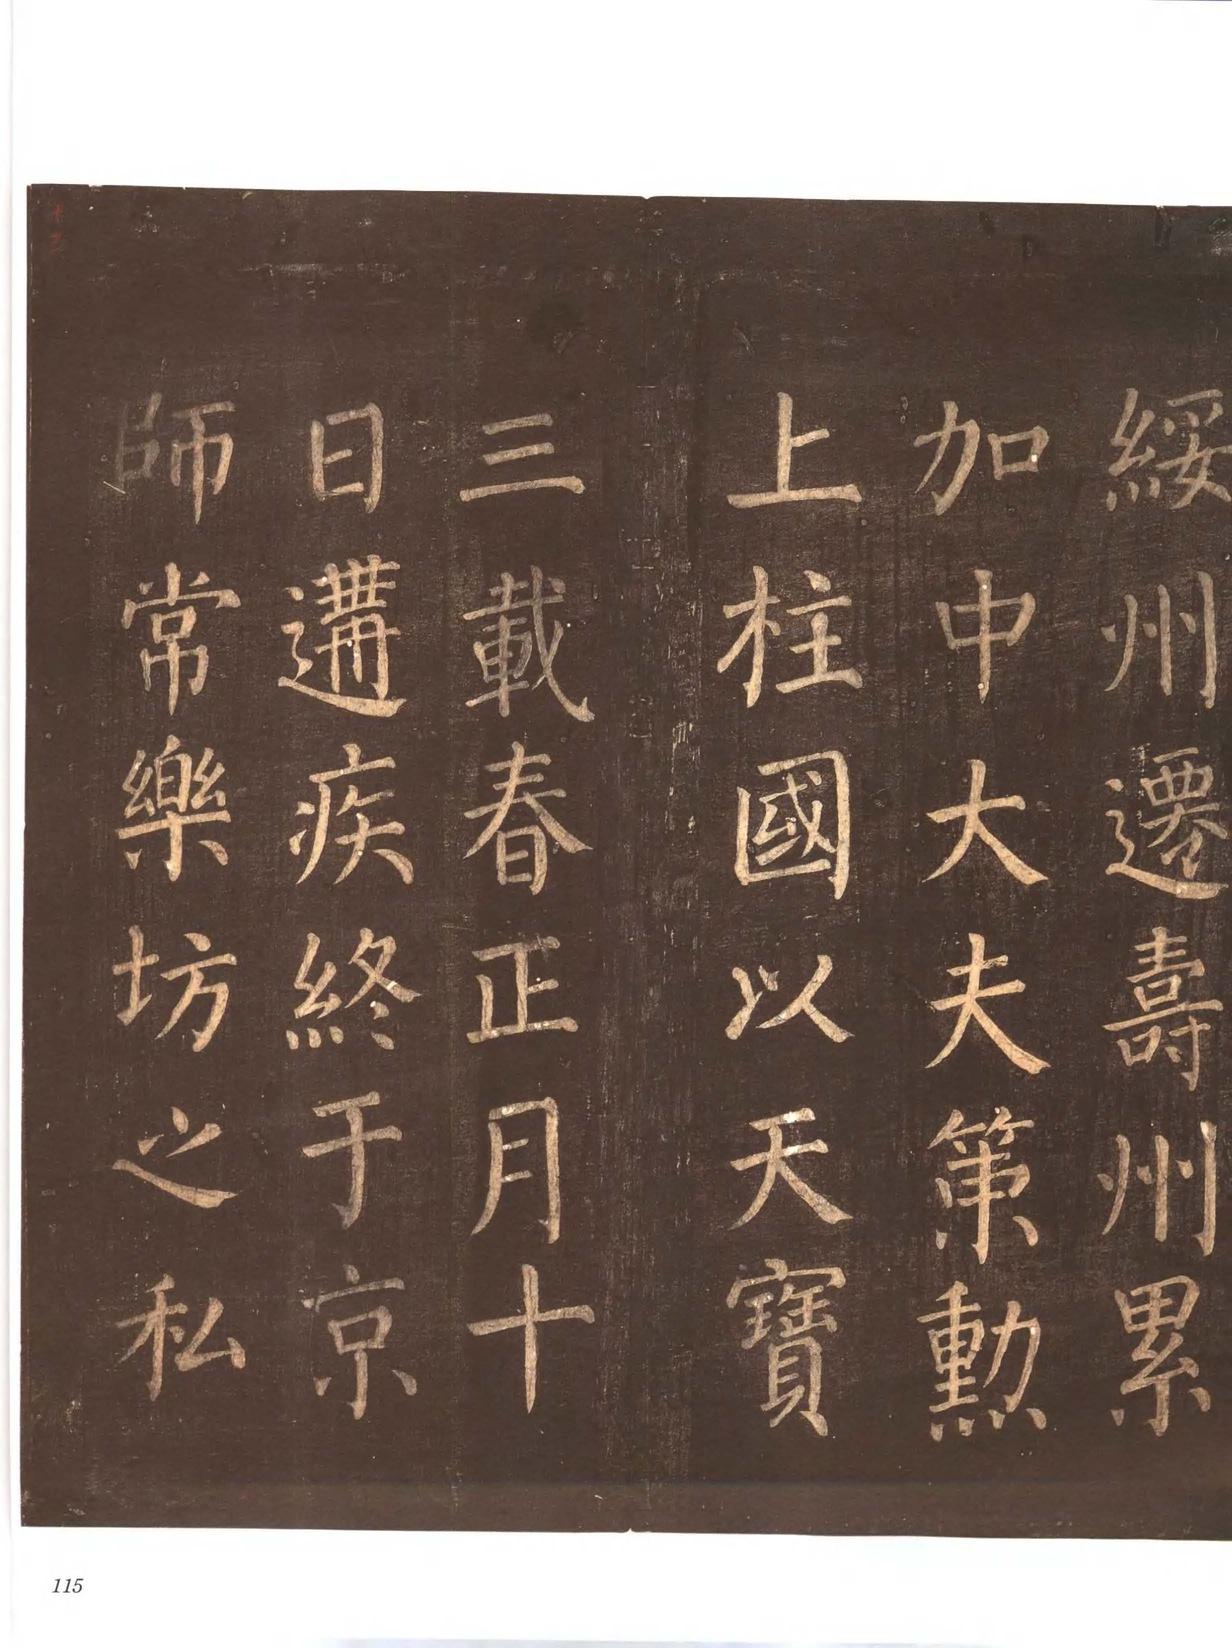 綏州遷壽州累
加中大夫第勳
上柱國以天寶
三載春正月十
日遘疾終于京
師常樂坊之私
115